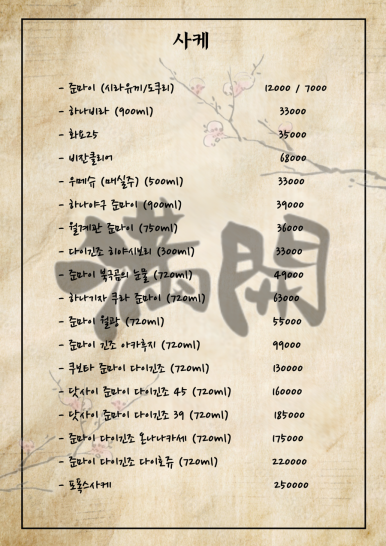 사케
- 준마이 (시라유끼/도쿠리) 12000 / 7000
- 하나비라 (900ml) 33000
- 화요25 35000
- 비잔클리어 68000
- 우메슈 (매실주) (500ml) 33000
- 하나야구 준마이 (900ml) 39000
- 월계관 준마이 (750ml) 36000
- 다이긴조 히야시보리 (300ml) 33000
- 준마이 북극곰의 눈물 (720ml) 49000
- 하나기자 쿠라 준마이 (720ml) 63000
- 준마이 월광 (720ml) 55000
- 준마이 긴조 아카후지 (720ml) 99000
- 쿠보타 준마이 다이긴조 (720ml) 130000
- 닷사이 준마이 다이긴조 45 (720ml) 160000
- 닷사이 준마이 다이긴조 39 (720ml) 185000
- 준마이 다이긴조 온나나카세 (720ml) 175000
- 준마이 다이긴조 다이호쥬 (720ml) 220000
- 포폭스사케 250000
満開